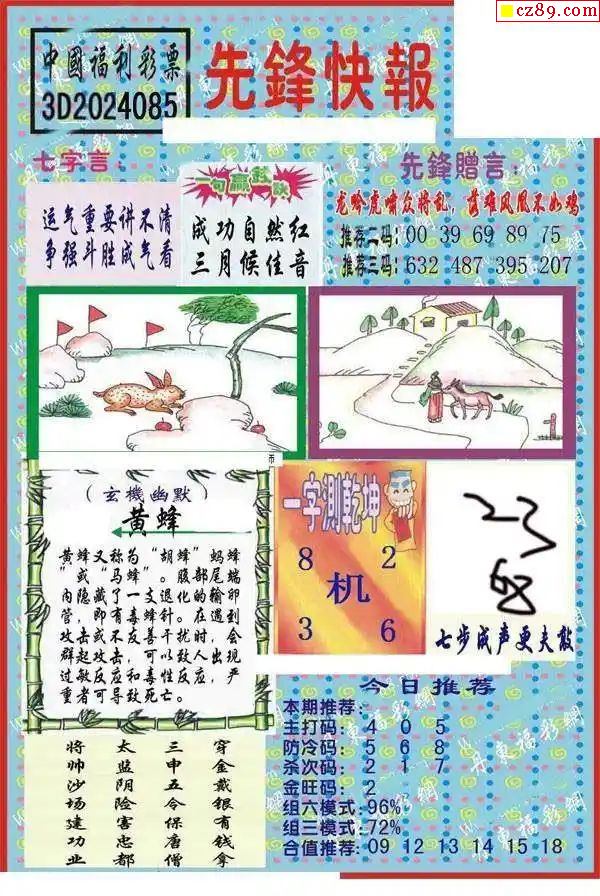 cz89.com
中國福利彩票
3D2024085
先鋒快報
七字言:
运气重要讲不清
争强斗胜成气看
一句赢彩诀
成功自然红
三月候佳音
先鋒贈言:
龙吟虎啸众将乱,落难凤凰不如鸡
推荐二码: 00 39 69 89 75
推荐三码: 632 487 395 207
(玄機幽默)
黄蜂
黄蜂又称为“胡蜂”蚂蜂
”或“马蜂”。腹部尾端
内隐藏了一支退化的输卵
管,即有毒蜂针。在遇到
攻击或不友善干扰时,会
群起攻击,可以致人出现
过敏反应和毒性反应,严
重者可导致死亡。
一字测乾坤
8 2
机
3 6
七步成声更夫敲
将帅沙场建功业
太监阴险害忠都
三申五令保唐僧
穿金戴银有钱拿
今日推荐
本期推荐:
主打码: 4 0 5
防冷码: 5 6 8
杀次码: 2 1 7
金旺码: 2
组六模式: 96%
组三模式: 72%
合值推荐: 09 12 13 14 15 18